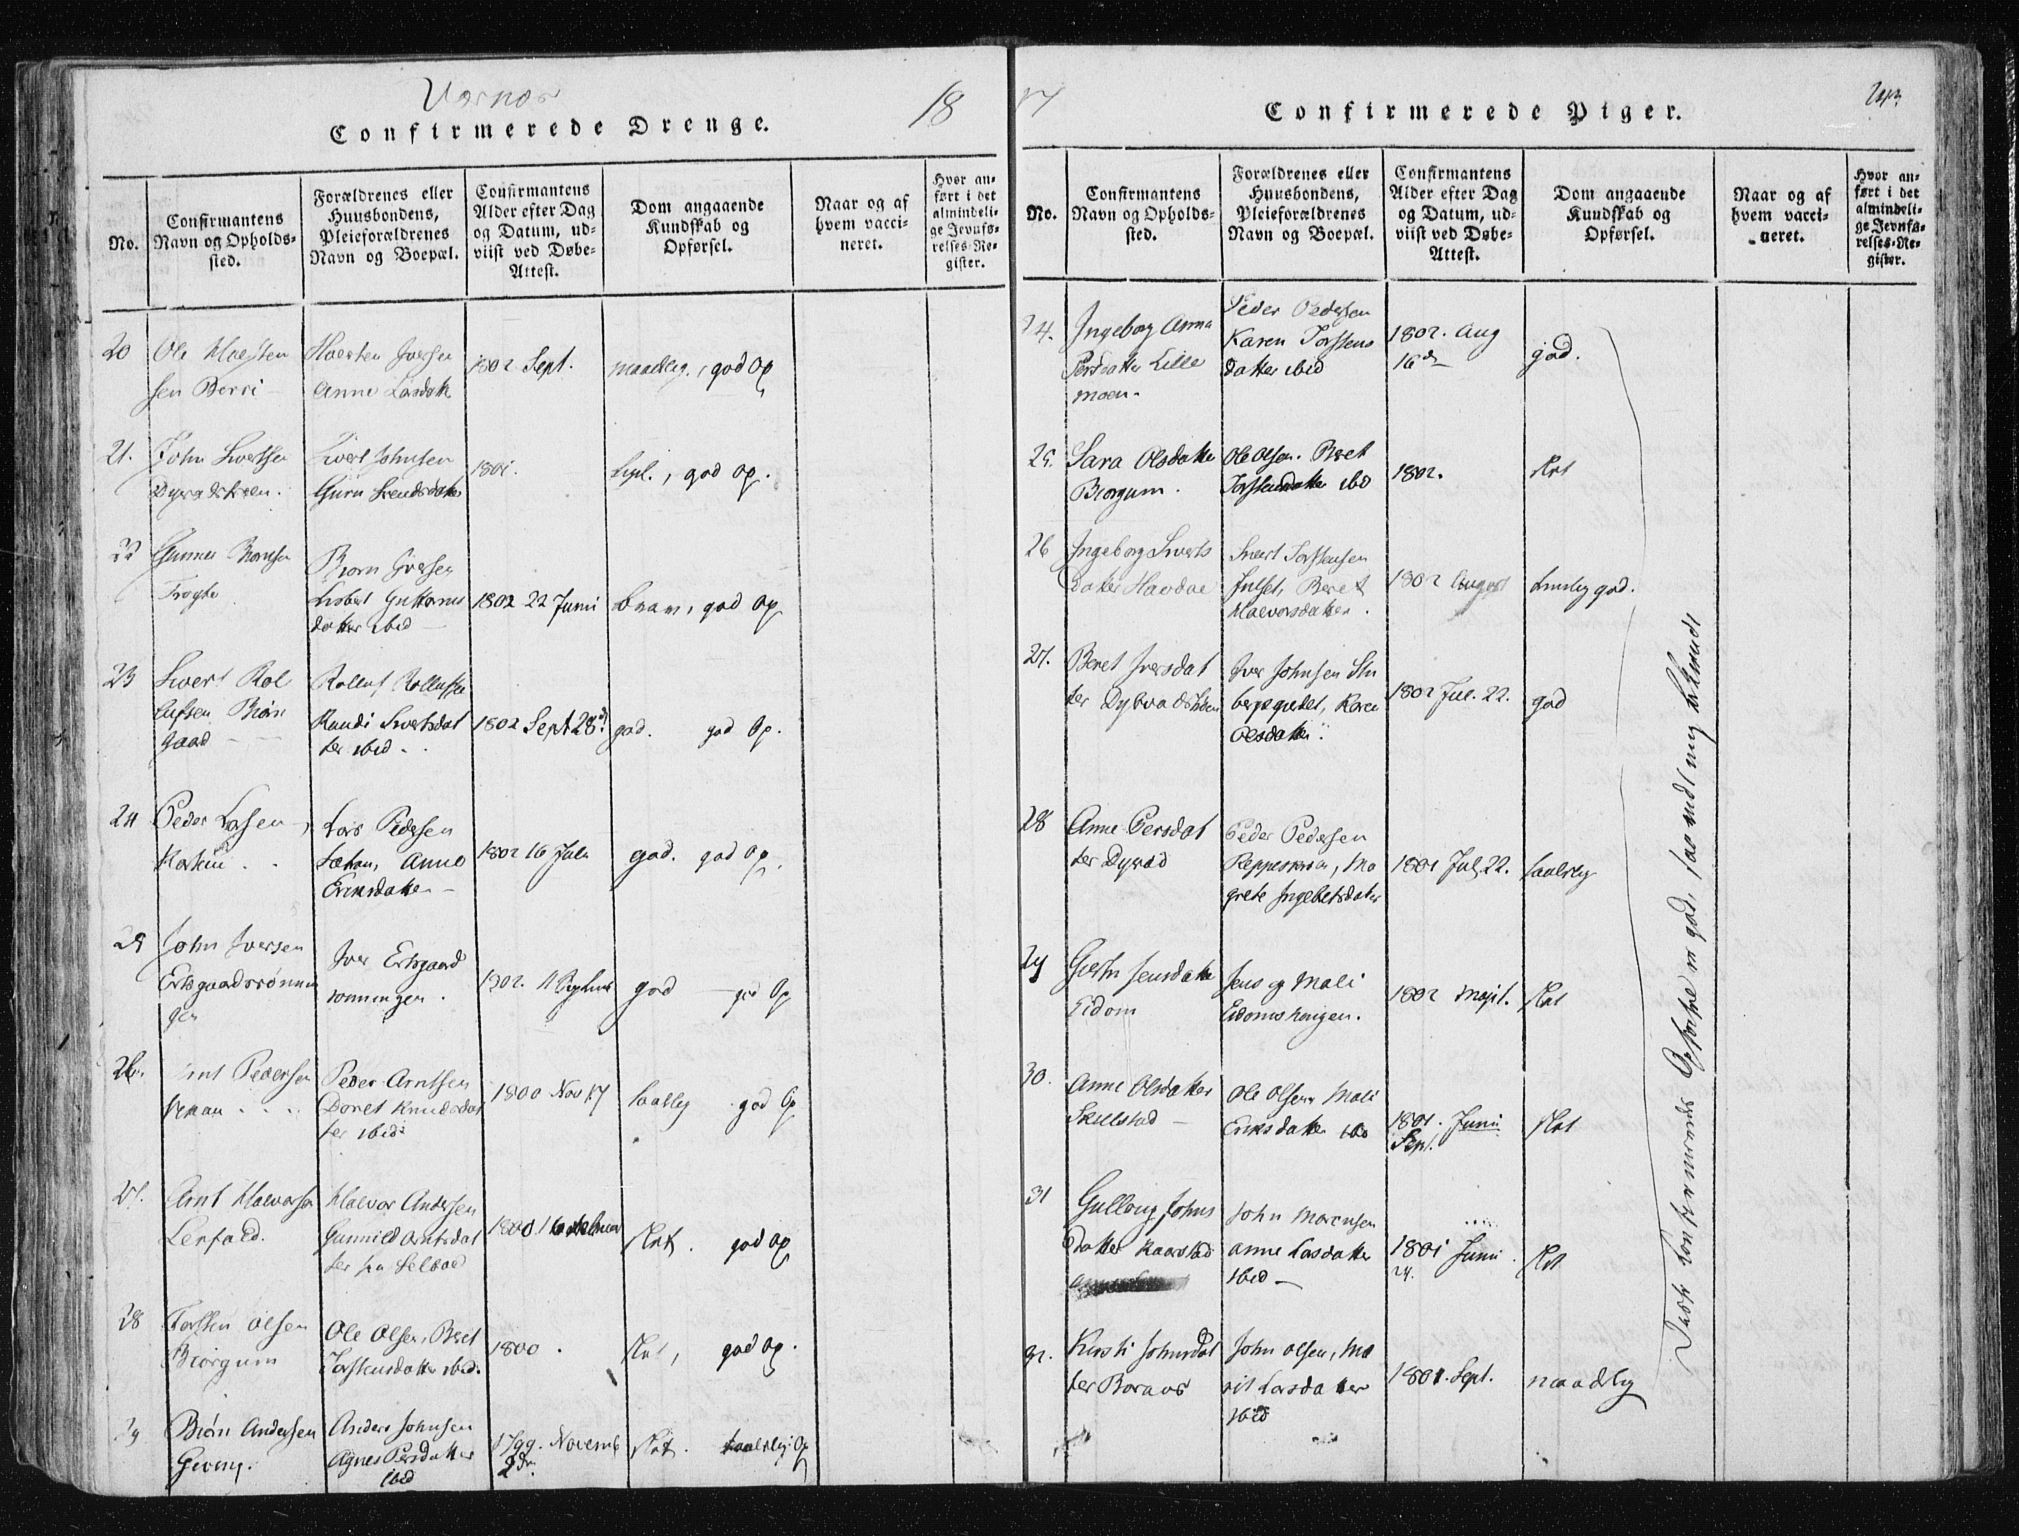 Værnæs
18
17
243
Confirmerede Drenge.
No.
Confirmantens
Navn og Opholds-
sted.
Forældrenes eller
Huusbondens,
Pleieforældrenes
Navn og Boepæl.
Confirmantens
Alder efter Dag
og Datum, ud-
viist ved Døbe-
Attest.
Dom angaaende
Kundskab og
Opførsel.
Naar og af
hvem vacci-
neret.
Hvor an-
ført i det
almindeli-
ge Jevnfø-
relses-Re-
gister.
20
Ole
sen Berri
Iversen
Anne Larsdatt
1802 Sept.
maadelig, god Op
21.
John Sivertsen
Sivert Johnsen
Guru Svendsdatter
1801.
god Op.
22
Gunner
Biørn Iversen
Lisbet Guttorms
datter ibid
1802 22 Junii
god Op
23
Sivert Rol
lufsen Biørn
gaad
Rolluf Rollufsen
Randi Sivertsdat
ter ibid
1802 Sept 28d
god. god Op.
24
Peder Larsen
Lars Pedersen
Anne
Eriksdatter
1802 16 Julii
god. god Op.
25
John Iversen
Ertsgaardsrønnin
gen
Iver Ertsgaard
rønningen.
1802. 11 Septemb
god god Op
26.
Arnt Pedersen
Peder Arntsen
Doret Knudsdat
ter ibid
1800 Nov 17
god Op
27.
Arnt Halvorsen
Lerfald.
Halvor Andersen
Gunnild Arntsdat
ter fra Selboe
1800 16
slet. god Op
28
Torsten Olsen
Biørgum
Ole Olsen, Beret
Torstensdatter ibid.
1800.
slet, god Op.
29
Biørn Andersen
Geving.
Anders Johnsen
Agnes Persdatter
ibid
1799. Novemb
2den
slet. Op
Confirmerede Piger.
No.
Confirmantens
Navn og Opholds-
sted.
Forældrenes eller
Huusbondens,
Pleieforældrenes
Navn og Boepæl.
Confirmantens
Alder efter Dag
og Datum, ud-
viist ved Døbe-
Attest.
Dom angaaende
Kundskab og
Opførsel.
Naar og af
hvem vacci-
neret.
Hvor an-
ført i det
almindeli-
ge Jevnfø-
relses-Re-
gister.
24.
Ingeborg Anna
Persdatter Lille
moen.
Peder Pedersen
Karen Torstens
datter ibid
1802. Aug
16d
god.
25.
Sara Olsdatter
Biørgum.
Ole Olsen. Beret
Torstensdatter ibid
1802.
slet
26
Ingeborg Siverts
datter Havdae
Sivert Torstensen
Julset, Beret
Halvorsdatter.
1802 August
god.
27.
Beret Iversdat
ter
Iver Johnsen Stu
Karen
Olsdatter
1802 Jul. 22.
god
28
Anne Persdat
ter Dyvad
Peder Pedersen
Reppesmoen, Ma
grete Ingebretsdatter
1801 Jul 22.
taalelig
29
Jensdatter
Eidom
Jens og Mali
1802 Majt.
slet
30.
Anne Olsdatter
Skielstad
Ole Olsen, Mali
Eriksdatter ibid
1801. Junii
Sept.
slet
31
Gullaug Johns
datter Kaarstad
John Morensen
Anne Larsdatter
ibid
1801 Junii
24.
slet
32.
Kirsti Johnsdat
ter Boraas
John Olsen, Ma
rit Larsdatter
ibid
1801. Sept.
maadelig
Disse Confirmerendes Opførsel er god, saavidt mig bekiendt